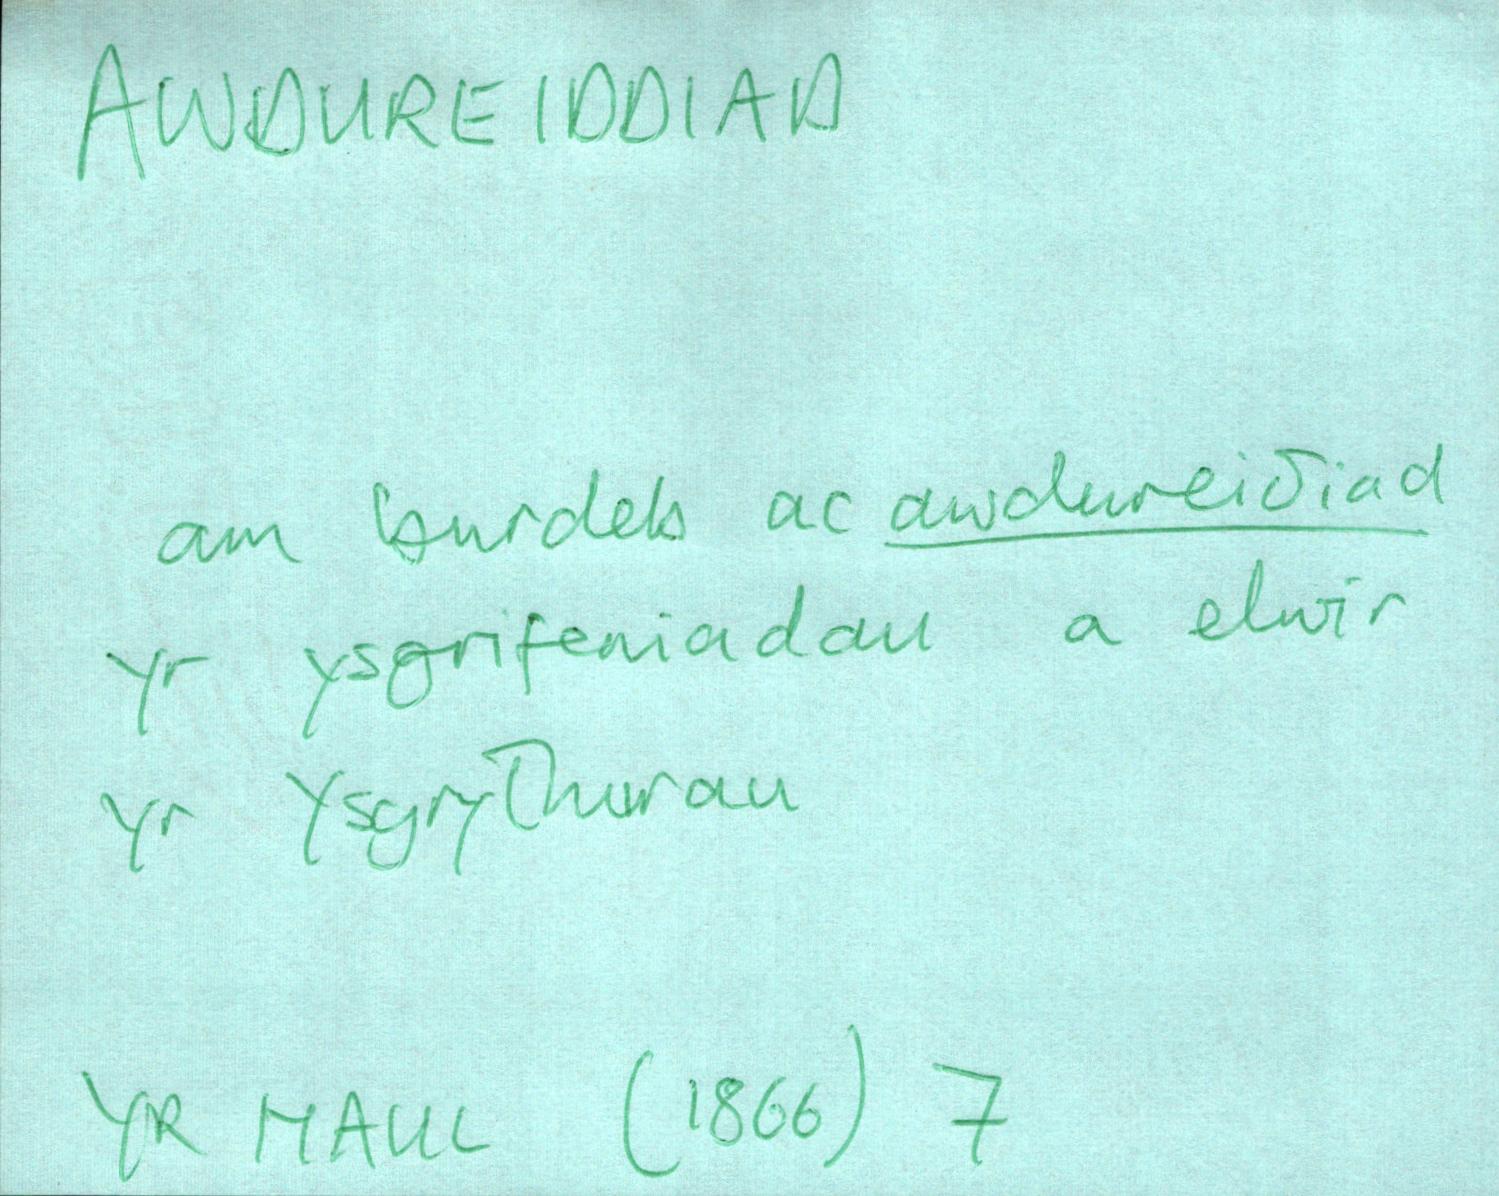 AWDUREIDDIAD
am burdeb ac awdureiδiad
yr ysgrifeniadau a elwir
yr Ysgrythurau
YR HAUL (1866) 7